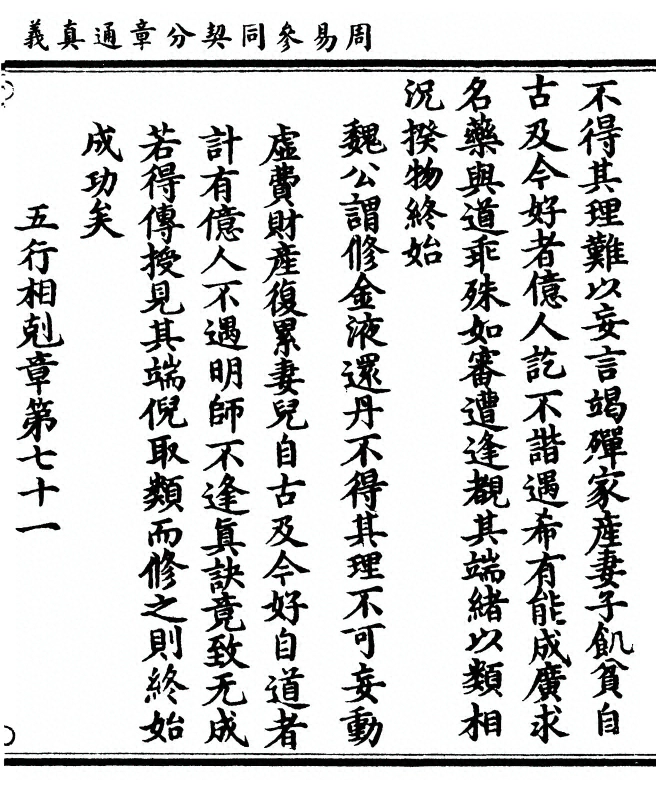 周易參同契分章通真義
不得其理難以妄言竭殫家產妻子飢貧自
古及今好者億人訖不諧遇希有能成廣求
名藥與道乖殊如審遭逢覩其端緒以類相
況揆物終始
魏公謂修金液還丹不得其理不可妄動
虛費財產復累妻兒自古及今好自道者
計有億人不遇明師不逢真訣竟致无成
若得傳授見其端倪取類而修之則終始
成功矣
五行相剋章第七十一